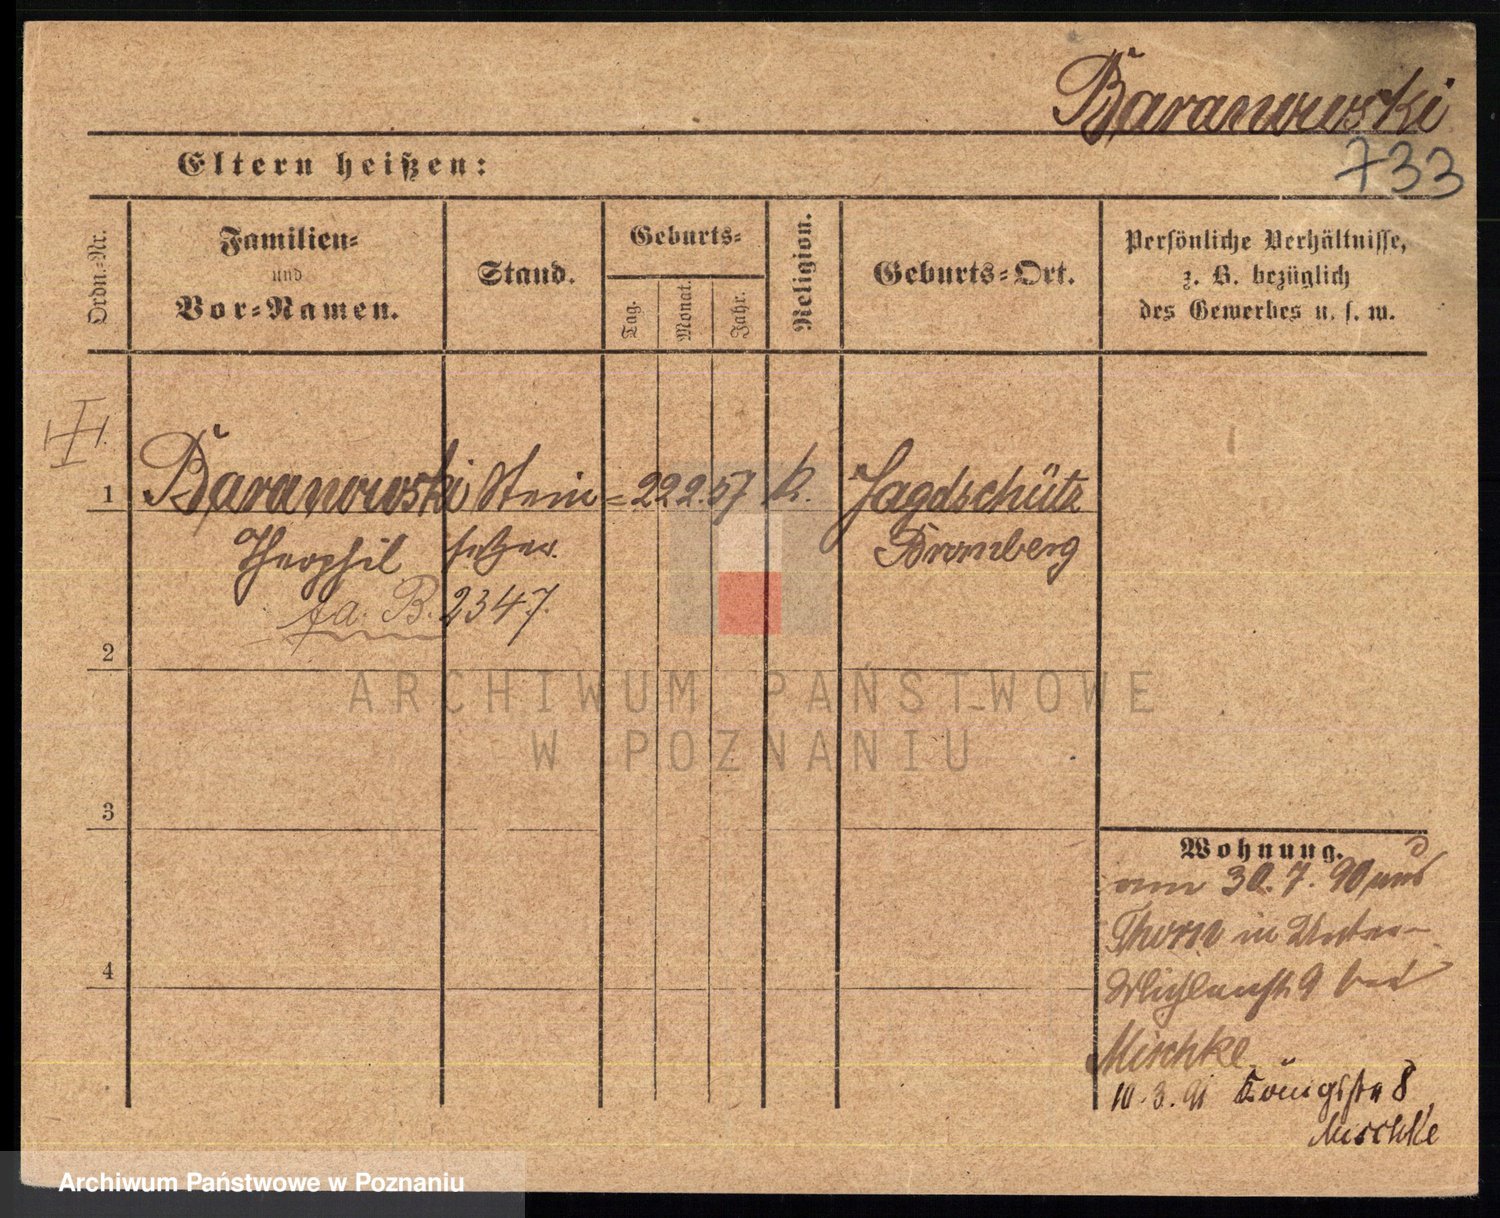 Baranowski
733
Eltern heißen:
Ordn.-Nr.
Familien-
und
Vor-Namen.
Stand.
Geburts-
Tag.
Monat.
Jahr.
Religion.
Geburts-Ort.
Persönliche Verhältnisse,
z. B. bezüglich
des Gewerbes u. s. w.
1 Baranowski Stein= 22 2. 57 k. Jagdschütz
Theophil setzer. Bromberg
fa. B. 2347.
2
ARCHIWUM PAŃSTWOWE
W POZNANIU
3
Wohnung.
am 30. 7. 90 aus
Thorn in Unter-
9 bei
4
Mischke
10. 3. 91 Königstr 8
Mischke
Archiwum Państwowe w Poznaniu